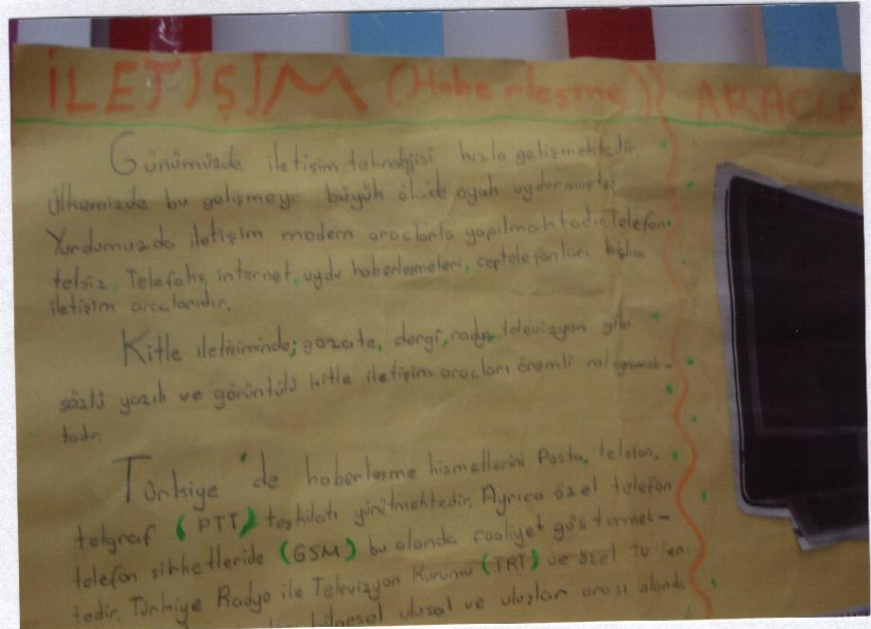 İLETİŞİM (Haberleşme) ARAÇLA
Günümüzde iletişim teknolojisi hızla gelişmektedir
Ülkemizde bu gelişmeye büyük ölçüde ayak uydurmuştur
Yurdumuzda iletişim modern araçlarla yapılmaktadır. Telefon,
telsiz, Telefaks, internet, uydu haberleşmeleri, cep telefonları
iletişim araçlarıdır.
Kitle iletişiminde; gazate, dergi, radyo, televizyon gibi
sözlü yazılı ve görüntülü kitle iletişim araçları önemli rol oynamak-
tadır.
Türkiye'de haberleşme hizmetlerini Posta, telefon,
telgraf (PTT) teşkilatı yürütmektedir. Ayrıca özel telefon
telefon şirketleride (GSM) bu alanda faaliyet göstermek-
tedir. Türkiye Radyo ile Televizyon Kurumu (TRT) ve özel
bölgesel ulusal ve uluslar arası alanda